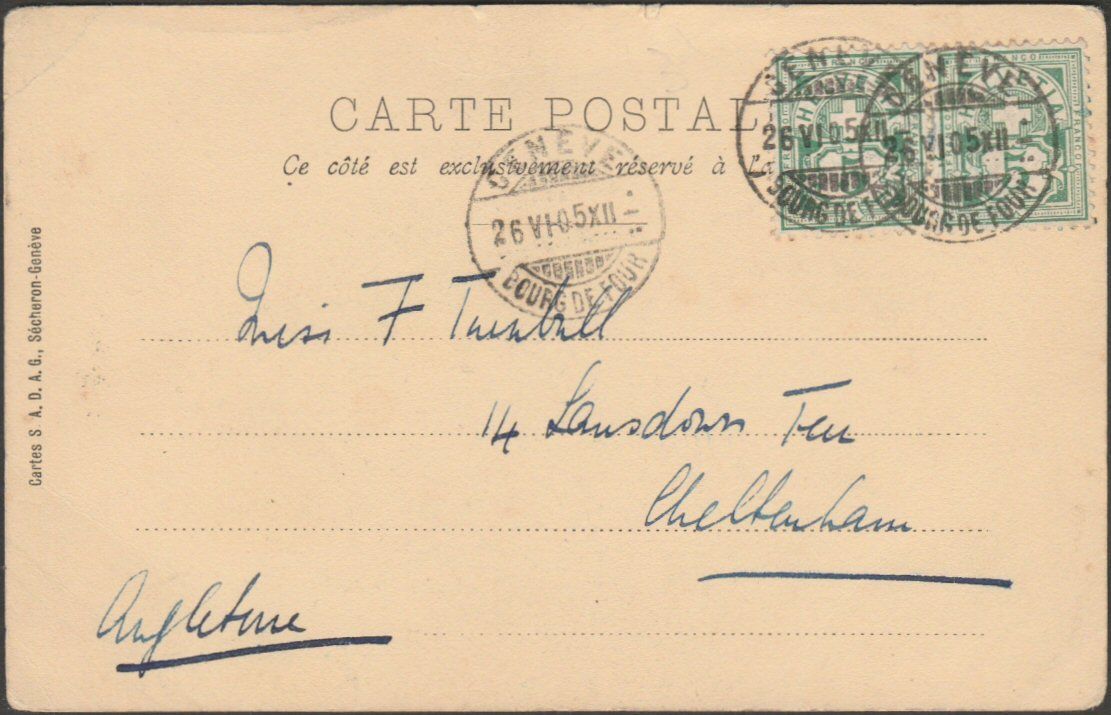 CARTE POSTAL
Ce côté est exclusivement réservé à l'a
GENÈVE
26 VI 05 XII
BOURG DE FOUR
GENÈVE
26 VI 05 XII
BOURG DE FOUR
GENÈVE
26 VI 05 XII
BOURG DE FOUR
FRANCO
HELV
Miss F Turnbull
14 Lansdown Terr
Cheltenham
Angleterre
Cartes S. A. D. A. G., Sécheron-Genève